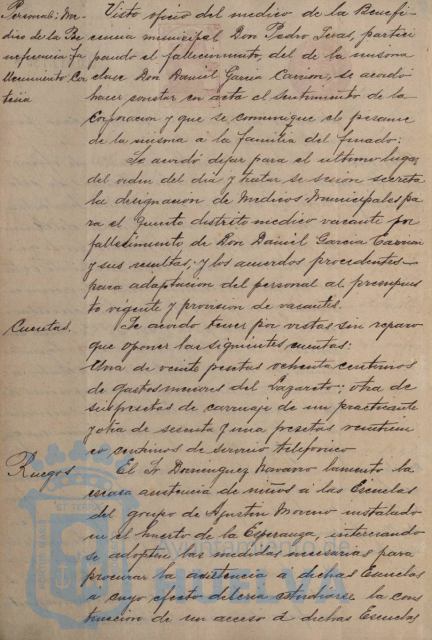 Personal: Mé-
dico de la Be
neficencia fa
llecimiento Cor
tesía
Visto oficio del medico de la Benefi-
cencia municipal Don Pedro Seras, partici
pando el fallecimiento, del de la misma
clase Don Daniel Garcia Carrion, se acordó
hacer constar en acta el sentimiento de la
Corporacion y que se comunique el pesame
de la misma á la familia del finado.
Se acordó dejar para el ultimo lugar
del orden del dia y tratar en sesion secreta
la designacion de Medicos Municipales pa
ra el Quinto distrito medico vacante por
fallecimiento de Don Daniel Garcia Carrion
y sus resultas; y los acuerdos procedentes
para adaptacion del personal al presupues
to vigente y provision de vacantes.
Cuentas.
Se acordo tener por vistas sin reparo
que oponer las siguientes cuentas:
Una de veinte pesetas ochenta centimos
de gastos menores del Lazareto; otra de
seis pesetas de carruaje de un practicante
y otra de sesenta y una pesetas veinticin
co centimos de servicio telefonico
Ruegos
El Sr Dominguez Navarro lamento la
escasa asistencia de niños á las Escuelas
del grupo de Agustin Moreno instalado
en el huerto de la Esperanza, interesando
se adopten las medidas necesarias para
procurar la asistencia á dichas Escuelas
á cuyo efecto debería estudiarse la cons
truccion de un acceso á dichas Escuelas
PORTUS MARIS
ET TERRAE
Ayuntamiento de
HUELVA